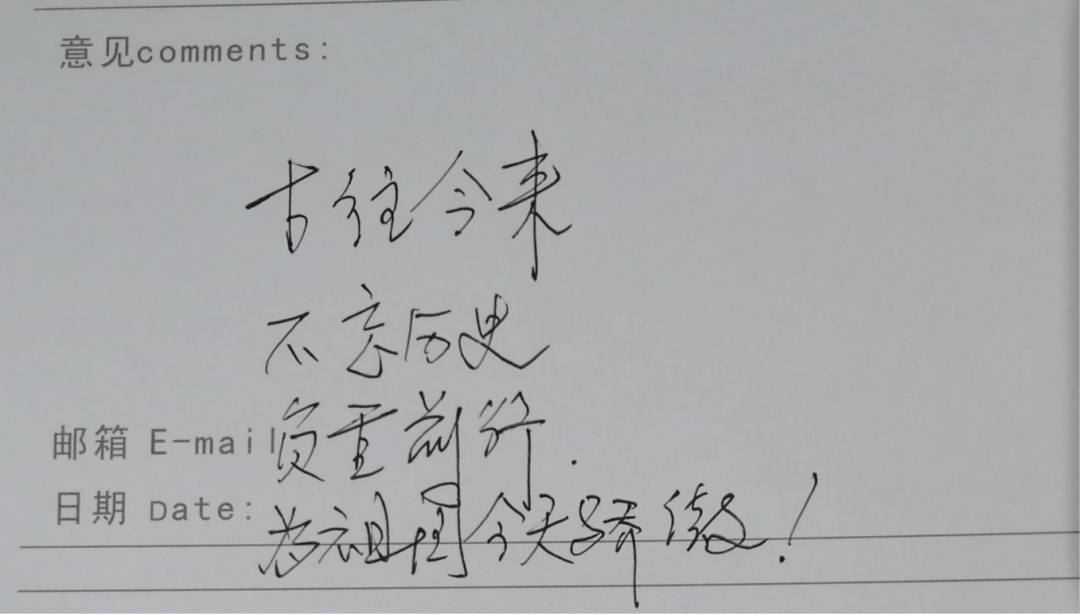 意见comments:
古往今来
不忘历史
邮箱 E-mail
负重前行.
日期 Date:
为祖国今天骄傲!